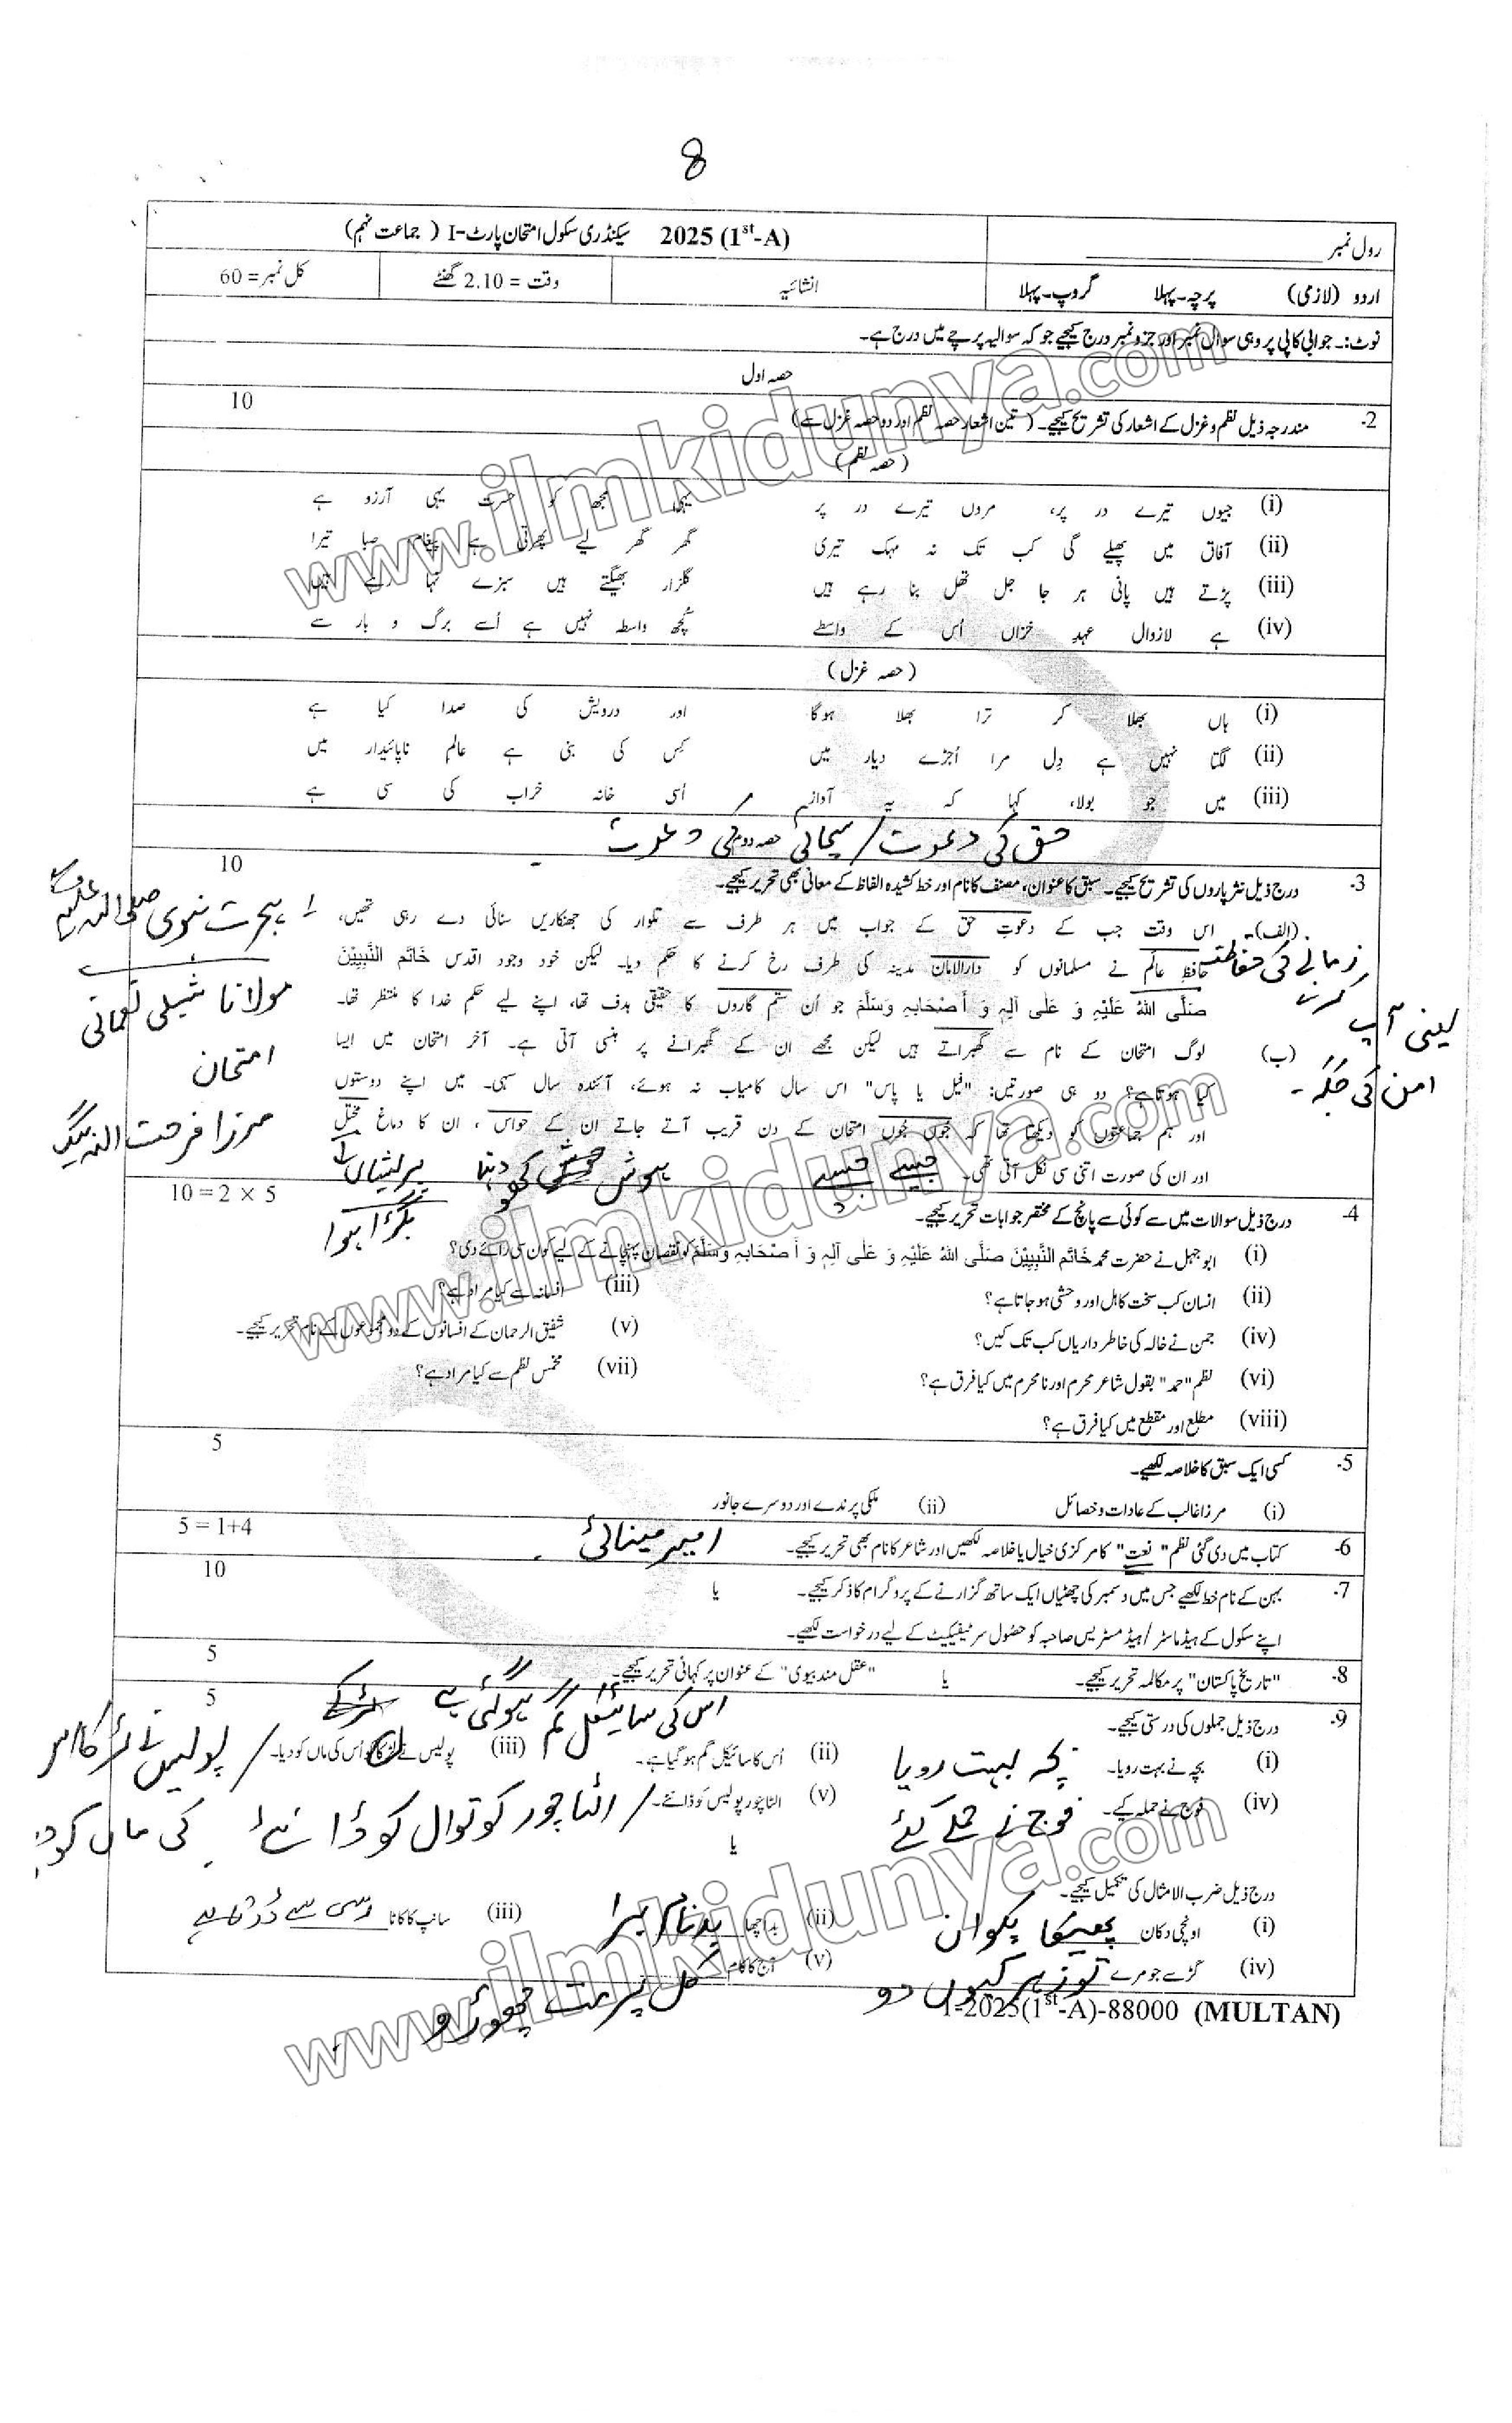 8
رول نمبر
2025 (1st-A) سیکنڈری سکول امتحان پارٹ-I ( جماعت نہم)
اردو (لازمی) پرچہ۔پہلا گروپ۔پہلا
انشائیہ
وقت = 2.10 گھنٹے
کل نمبر = 60
نوٹ:۔ جوابی کاپی پر وہی سوال نمبر اور جزو نمبر درج کیجیے جو کہ سوالیہ پرچے میں درج ہے۔
حصہ اول
2- مندرجہ ذیل نظم و غزل کے اشعار کی تشریح کیجیے۔ (تین اشعار حصہ نظم اور دو حصہ غزل سے) 10
(حصہ نظم)
(i) جیوں تیرے در پر، مروں تیرے در پر یہی مجھ کو حسرت یہی آرزو ہے
(ii) آفاق میں پھیلے گی کب تک نہ مہک تیری گھر گھر لیے پھرتی ہے پیغام صبا تیرا
(iii) پڑتے ہیں پانی ہر جا جل تھل بنا رہے ہیں گلزار بھیگتے ہیں سبزے نہا رہے ہیں
(iv) ہے لازوال عہدِ خزاں اُس کے واسطے کچھ واسطہ نہیں ہے اُسے برگ و بار سے
(حصہ غزل)
(i) ہاں بھلا کر ترا بھلا ہوگا اور درویش کی صدا کیا ہے
(ii) لگتا نہیں ہے دِل مرا اُجڑے دیار میں کِس کی بنی ہے عالمِ ناپائیدار میں
(iii) میں جو بولا، کہا کہ یہ آواز اُسی خانہ خراب کی سی ہے
حصہ دوم
حق کی دعوت / سچائی کی دعوت
3- درج ذیل نثرپاروں کی تشریح کیجیے۔ سبق کا عنوان، مصنف کا نام اور خط کشیدہ الفاظ کے معانی بھی تحریر کیجیے۔ 10
(الف)۔ اس وقت جب کے دعوتِ حق کے جواب میں ہر طرف سے تلوار کی جھنکاریں سنائی دے رہی تھیں،
حافظِ عالم نے مسلمانوں کو دارالامان مدینہ کی طرف رخ کرنے کا حکم دیا۔ لیکن خود وجود اقدس خَاتَم النَّبِیِّیْنَ
صَلَّی اللہُ عَلَیْہِ وَ عَلٰی آلِہٖ وَ اَصْحَابِہٖ وَسَلَّمَ جو اُن ستم گاروں کا حقیقی ہدف تھا، اپنے لیے حکم خدا کا منتظر تھا۔
(ب) لوگ امتحان کے نام سے گھبراتے ہیں لیکن مجھے ان کے گھبرانے پر ہنسی آتی ہے۔ آخر امتحان میں ایسا
کیا ہوتا ہے؟ دو ہی صورتیں: "فیل یا پاس" اس سال کامیاب نہ ہوئے، آئندہ سال سہی۔ میں اپنے دوستوں
اور ہم جماعتوں کو دیکھتا تھا کہ جوں جُوں امتحان کے دن قریب آتے جاتے ان کے حواس، ان کا دماغ مختل
اور ان کی صورت اتنی سی نکل آتی تھی۔
ہجرت نبوی صلی اللہ علیہ وسلم
مولانا شبلی نعمانی
امتحان
مرزا فرحت اللہ بیگ
زمانے کی حفاظت
کرنے
یعنی آپ
امن کی جگہ۔
جیسے جیسے
ہوش کھو دینا
پریشان
بگڑا ہوا
4- درج ذیل سوالات میں سے کوئی سے پانچ کے مختصر جوابات تحریر کیجیے۔ 10 = 2 × 5
(i) ابو جہل نے حضرت محمد خَاتَم النَّبِیِّیْنَ صَلَّی اللہُ عَلَیْہِ وَ عَلٰی آلِہٖ وَ اَصْحَابِہٖ وَسَلَّمَ کو نقصان پہنچانے کے لیے کون سی رائے دی؟
(ii) انسان کب سخت کاہل اور وحشی ہو جاتا ہے؟ (iii) افسانہ سے کیا مراد ہے؟
(iv) جمن نے خالہ کی خاطر داریاں کب تک کیں؟ (v) شفیق الرحمان کے افسانوں کے دو مجموعوں کے نام تحریر کیجیے۔
(vi) نظم "حمد" بقول شاعر محرم اور نامحرم میں کیا فرق ہے؟ (vii) مخمس نظم سے کیا مراد ہے؟
(viii) مطلع اور مقطع میں کیا فرق ہے؟
5- کسی ایک سبق کا خلاصہ لکھیے۔ 5
(i) مرزا غالب کے عادات و خصائل (ii) ملکی پرندے اور دوسرے جانور
6- کتاب میں دی گئی نظم "نعت" کا مرکزی خیال یا خلاصہ لکھیں اور شاعر کا نام بھی تحریر کیجیے۔ 5 = 1+4
امیر مینائی
7- بہن کے نام خط لکھیے جس میں دسمبر کی چھٹیاں ایک ساتھ گزارنے کے پروگرام کا ذکر کیجیے۔ یا 10
اپنے سکول کے ہیڈ ماسٹر / ہیڈ مسٹریس صاحبہ کو حصُول سرٹیفیکیٹ کے لیے درخواست لکھیے۔
8- "تاریخ پاکستان" پر مکالمہ تحریر کیجیے۔ یا "عقل مند بیوی" کے عنوان پر کہانی تحریر کیجیے۔ 5
9- درج ذیل جملوں کی درستی کیجیے۔ 5
اس کی سائیکل گم ہو گئی ہے
(i) بچہ نے بہت رویا۔ بچہ بہت رویا (ii) اُس کا سائیکل گم ہو گیا ہے۔ (iii) پولیس نے لڑکا کو اُس کی ماں کو دیا۔
(iv) فوج نے حملہ کیے۔ فوج نے حملے کئے (v) الٹا چور پولیس کو ڈانٹے۔ / الٹا چور کوتوال کو ڈانٹے
یا
درج ذیل ضرب الامثال کی تکمیل کیجیے۔
(i) اونچی دکان پھیکا پکوان (ii) بد اچھا بدنام برا (iii) سانپ کا کاٹا رسی سے ڈرتا ہے
(iv) گڑ سے جو مرے تو زہر کیوں دو (v) آج کا کام کل پر مت چھوڑو
1-2025(1st-A)-88000 (MULTAN)
www.ilmkidunya.com
www.ilmkidunya.com
www.ilmkidunya.com